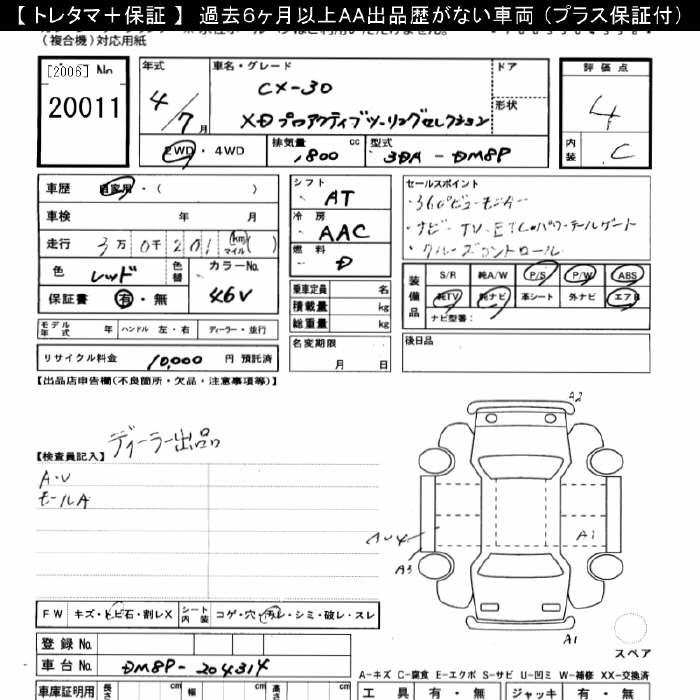 【トレタマ＋保証】 過去6ヶ月以上AA出品歴がない車両（プラス保証付）
（複合機）対応用紙
[2006] No
20011
年式
4/7月
車名・グレード
CX-30
XD プロアクティブツーリングセレクション
ドア
形状
評価点
4
内装
C
2WD・4WD
排気量 1,800 cc
型式 3DA-DM8P
車歴 自家用・（ ）
車検 年 月
走行 3万0千201 (km) マイル ( )
色 レッド
色替
カラーNo. 46V
保証書 有・無
モデル年式 年
ハンドル 左・右
ディーラー・並行
リサイクル料金 10,000 円 預託済
シフト AT
冷房 AAC
燃料 D
乗車定員 名
積載量 kg
総重量 kg
名変期限
月 日
セールスポイント
・360°ビューモニター
・ナビ・TV・ETC・パワーテールゲート
・クルーズコントロール
装備品
S/R 純A/W P/S P/W ABS
純TV 純ナビ 革シート 外ナビ エアB
ナビ型番：
後日品
【出品店申告欄(不良箇所・欠品・注意事項等)】
ディーラー出品
【検査員記入】
A・U
モールA
A2
A1
A3
A1
FW キズ・トビ石・割レX
シート内装 コゲ・穴・汚レ・シミ・破レ・スレ
登録No.
車台No. DM8P-204314
スペア
A-キズ C-腐食 E-エクボ S-サビ U-凹ミ W-補修 XX-交換済
車庫証明用 長さ cm 幅 cm 高さ cm
工具 有・無
ジャッキ 有・無